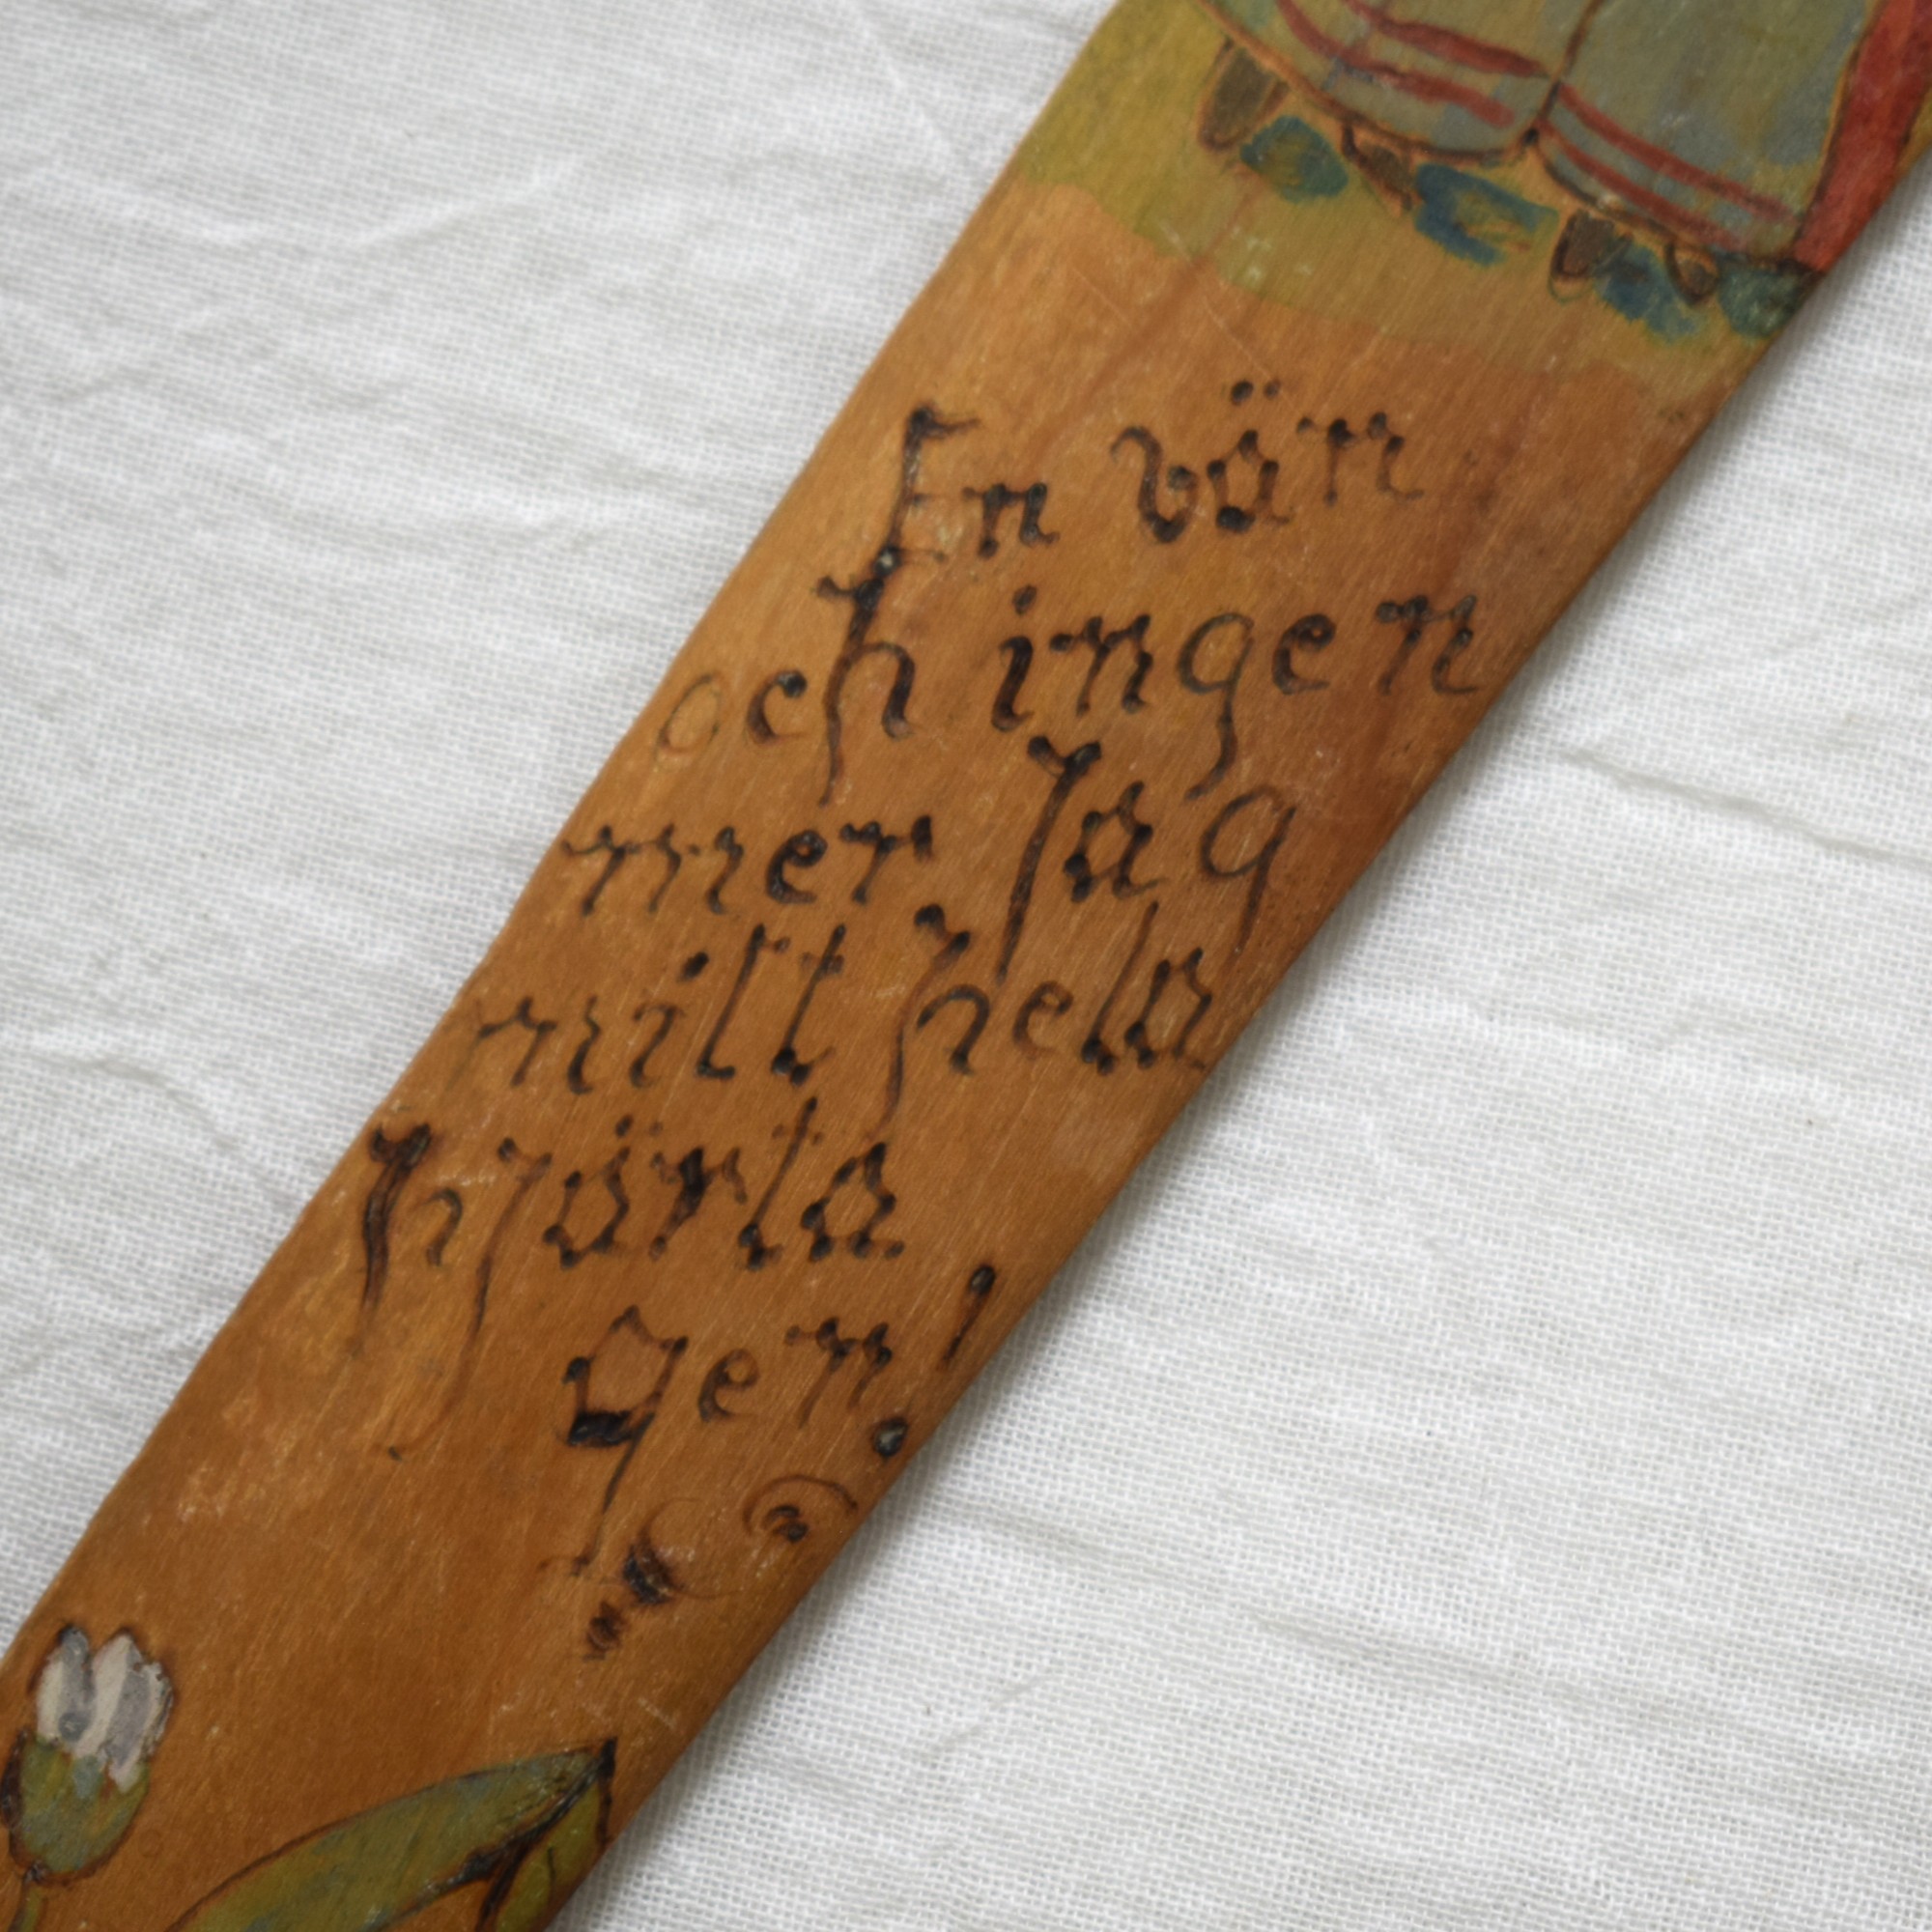 En vän
och ingen
mer Jag
mitt hela
hjärta
gen!